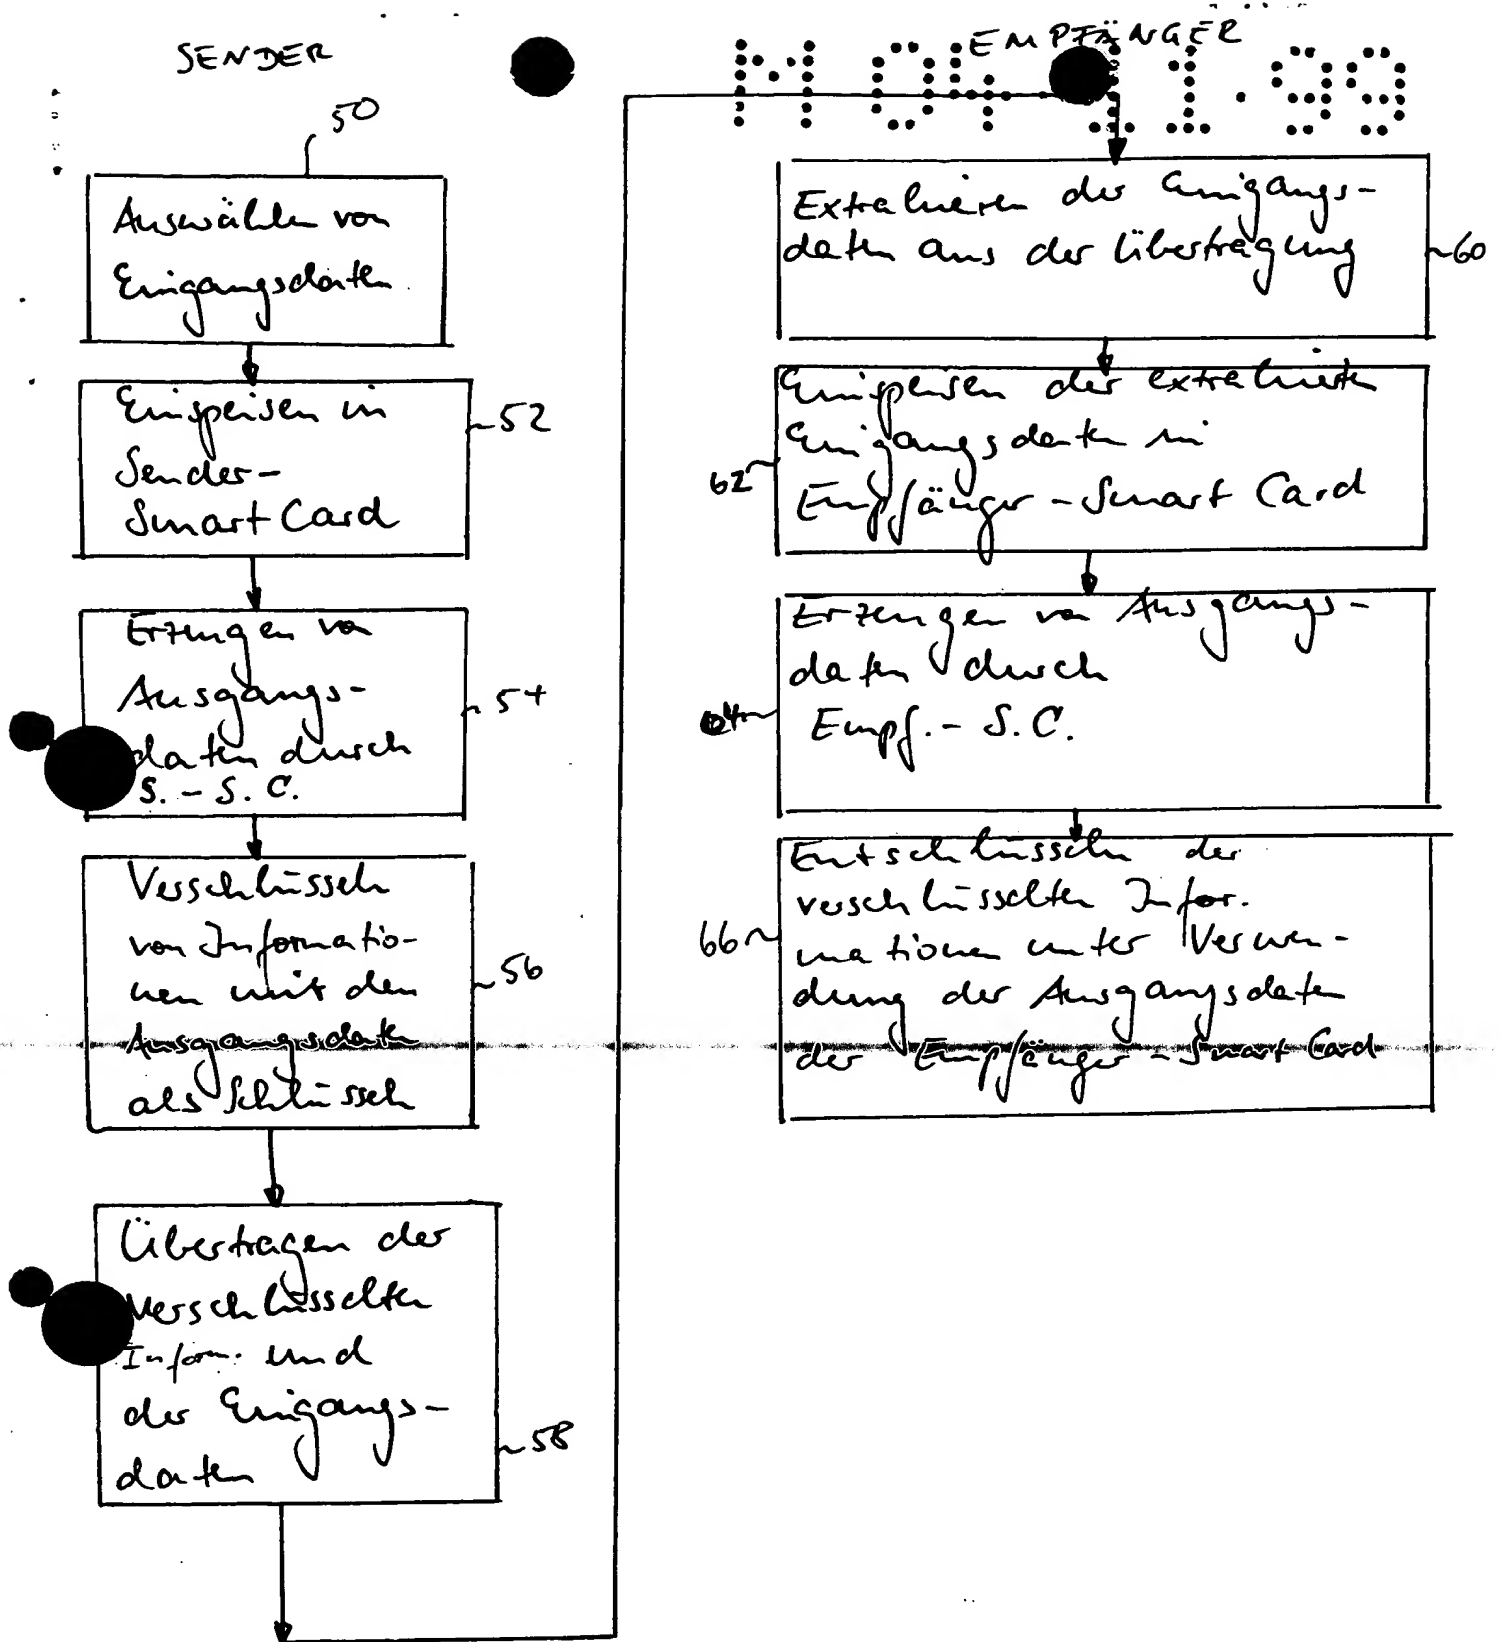 SENDER
50
Auswählen von
Eingangsdaten
Einspeisen in
Sender-
Smart Card
52
Erzeugen von
Ausgangs-
daten durch
S. - S. C.
54
Verschlüsseln
von Informatio-
nen mit den
Ausgangsdaten
als Schlüsseln
56
Übertragen der
verschlüsselten
Inform. und
der Eingangs-
daten
58
EMPFÄNGER
M 04.11.99
Extrahieren der Eingangs-
daten aus der Übertragung
60
Einspeisen der extrahierten
Eingangsdaten in
Empfänger - Smart Card
62
Erzeugen von Ausgangs-
daten durch
Empf. - S. C.
64
Entschlüsseln der
verschlüsselten Infor-
mationen unter Verwen-
dung der Ausgangsdaten
der Empfänger - Smart Card
66